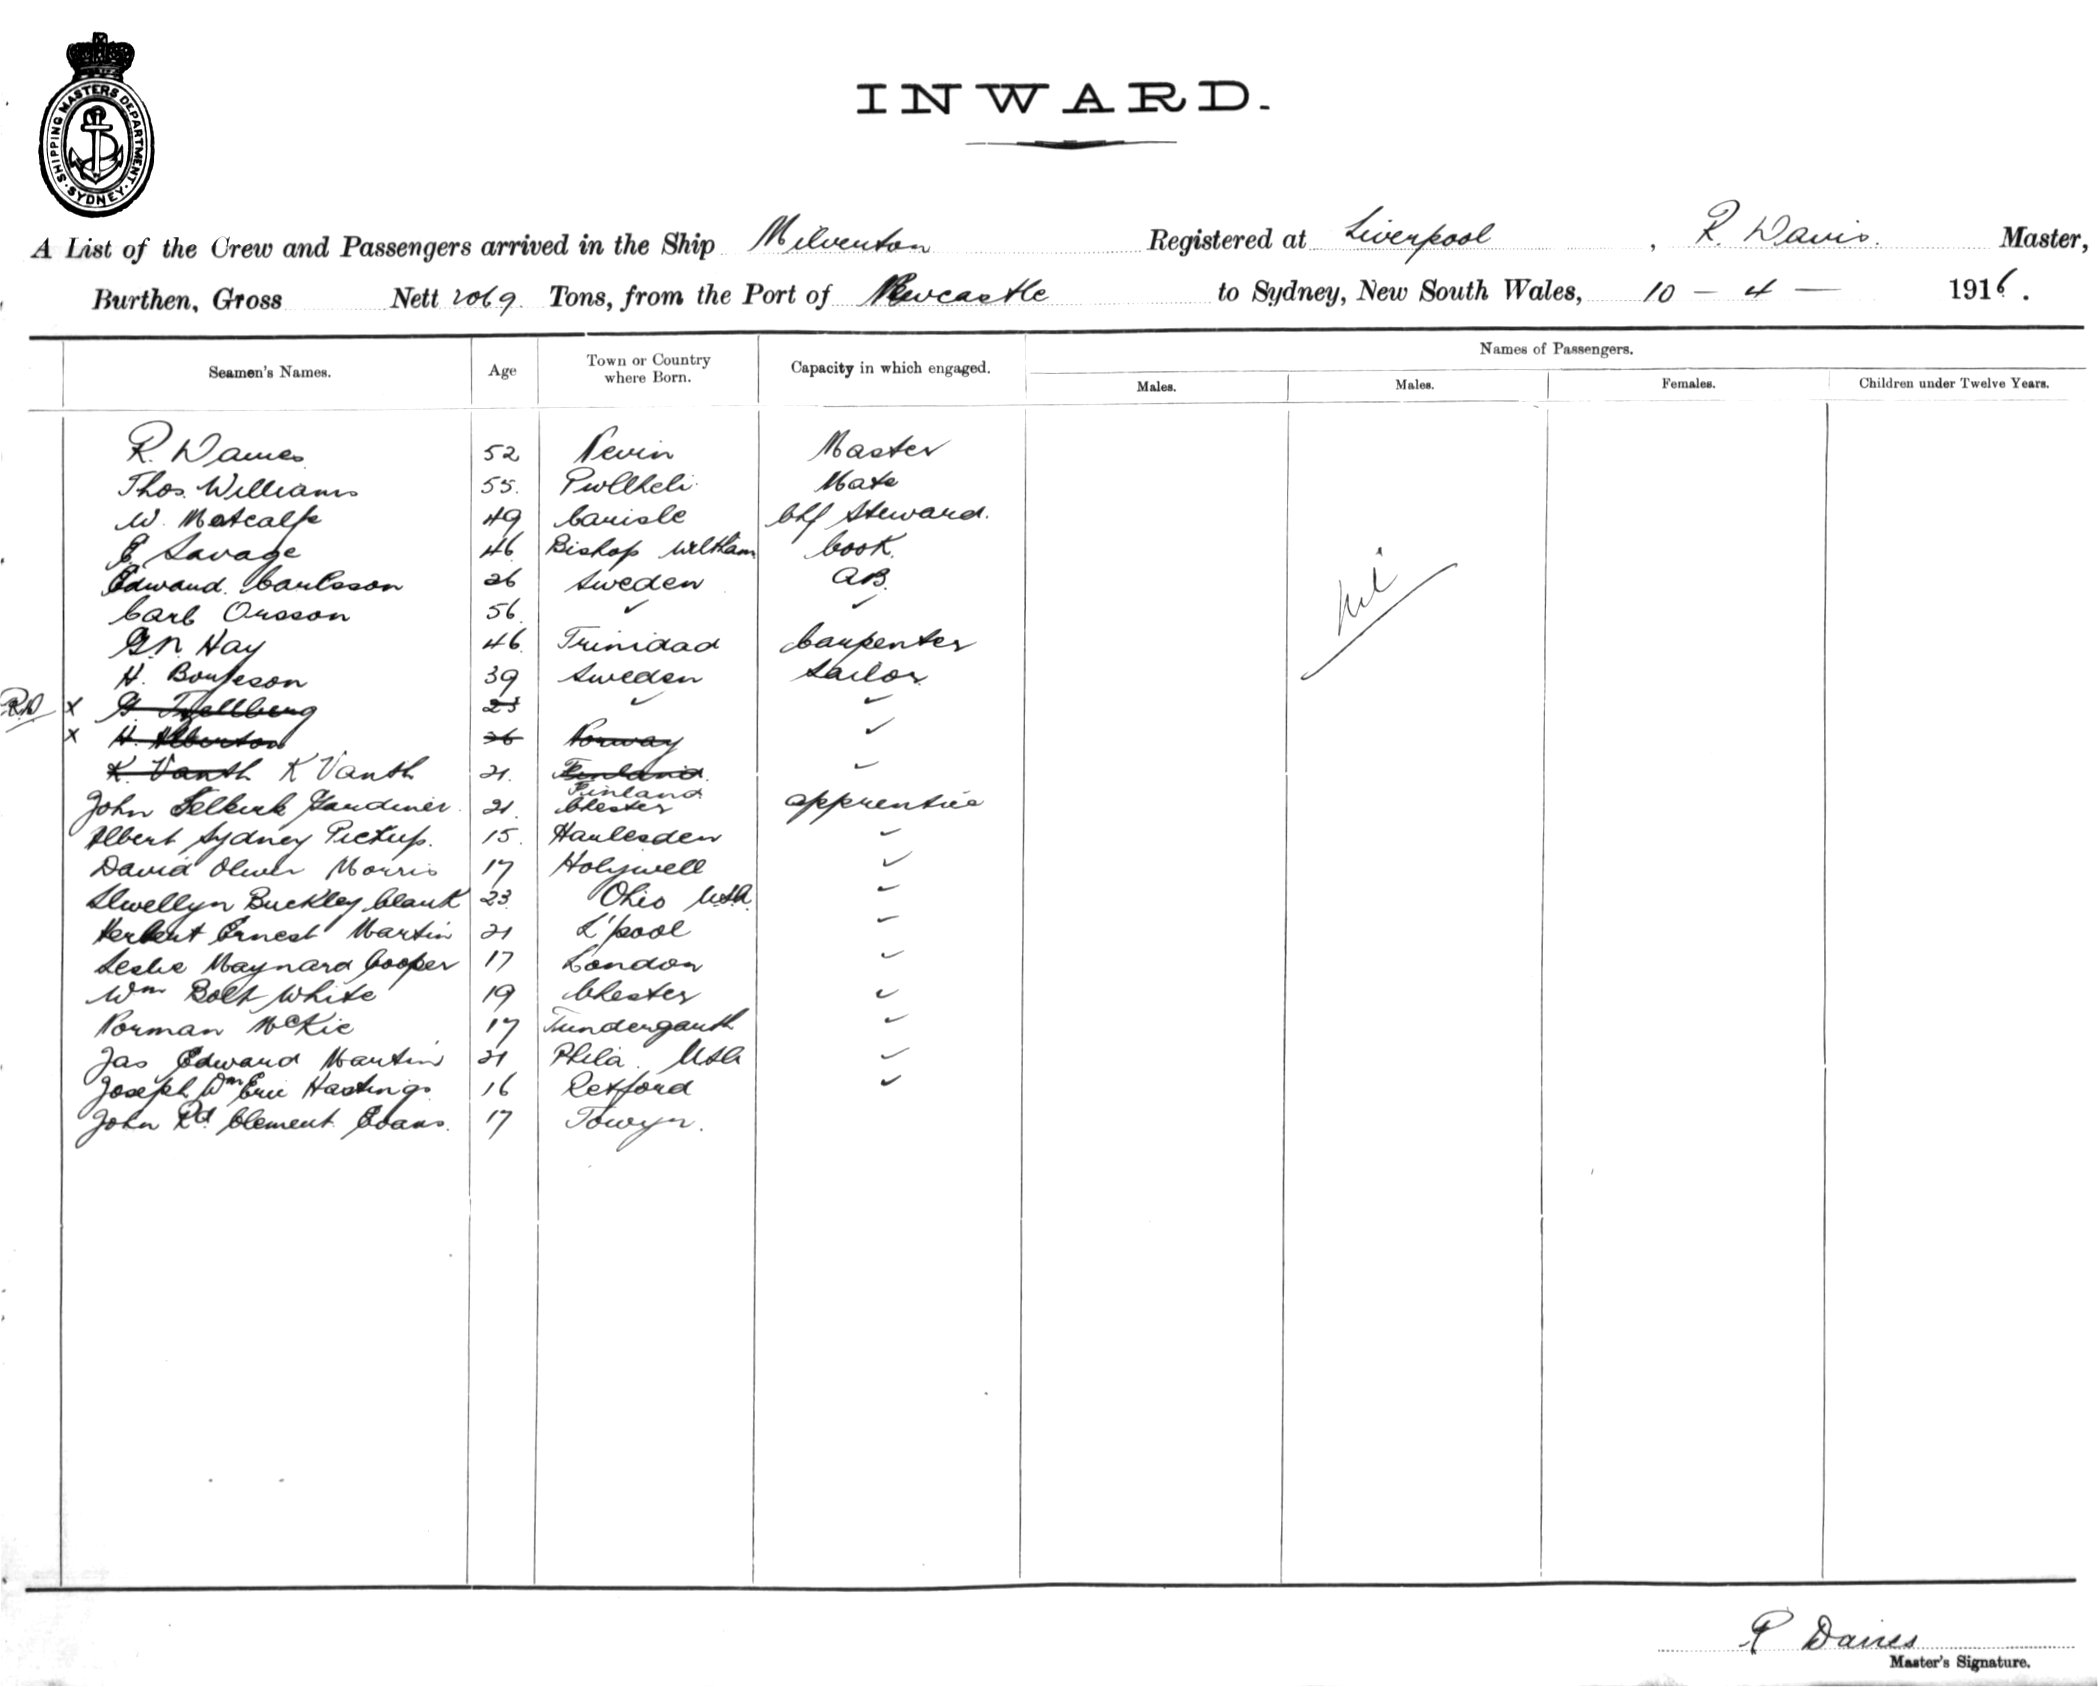 SHIPPING MASTERS DEPARTMENT. SYDNEY.
INWARD.
A List of the Crew and Passengers arrived in the Ship Milverton Registered at Liverpool, R. Davis. Master,
Burthen, Gross Nett 2069 Tons, from the Port of Newcastle to Sydney, New South Wales, 10 - 4 - 1916.
Names of Passengers.
Seamen's Names. Age Town or Country where Born. Capacity in which engaged. Males. Males. Females. Children under Twelve Years.
R. Davies 52 Nevin Master
Thos. Williams 55. Pwllheli Mate
W. Metcalfe 49 Carisle Chf Steward.
E. Savage 46 Bishop Cook.
Edward. Carlsson 26 Sweden AB.
Carl 56 ✓ ✓
G.N. Hay 46 Trinidad Carpenter
H. 39 Sweden Sailor
RD X G. 23 ✓ ✓
X H. Alberton 26 Norway ✓
K. Vanth K Vanth 21. Finland. ✓
Finland
John Selkirk Gardiner. 21. Chester apprentice
Albert Sydney Pickup. 15. Harlesden ✓
David Oliver Morris 17 Holywell ✓
Llwellyn Buckley Clark 23 Ohio USA. ✓
Herbert Ernest Martin 21 L'pool ✓
Leslie Maynard Cooper 17 London ✓
Wm Bolt White 19 Chester ✓
Norman McKie 17 Tundergarth ✓
Jas Edward Martin 21 Phila. USA ✓
Joseph Wm Eric Hastings. 16 Retford ✓
John Rd. Clement Evans. 17 Towyn.
Nil
R Davies
Master's Signature.